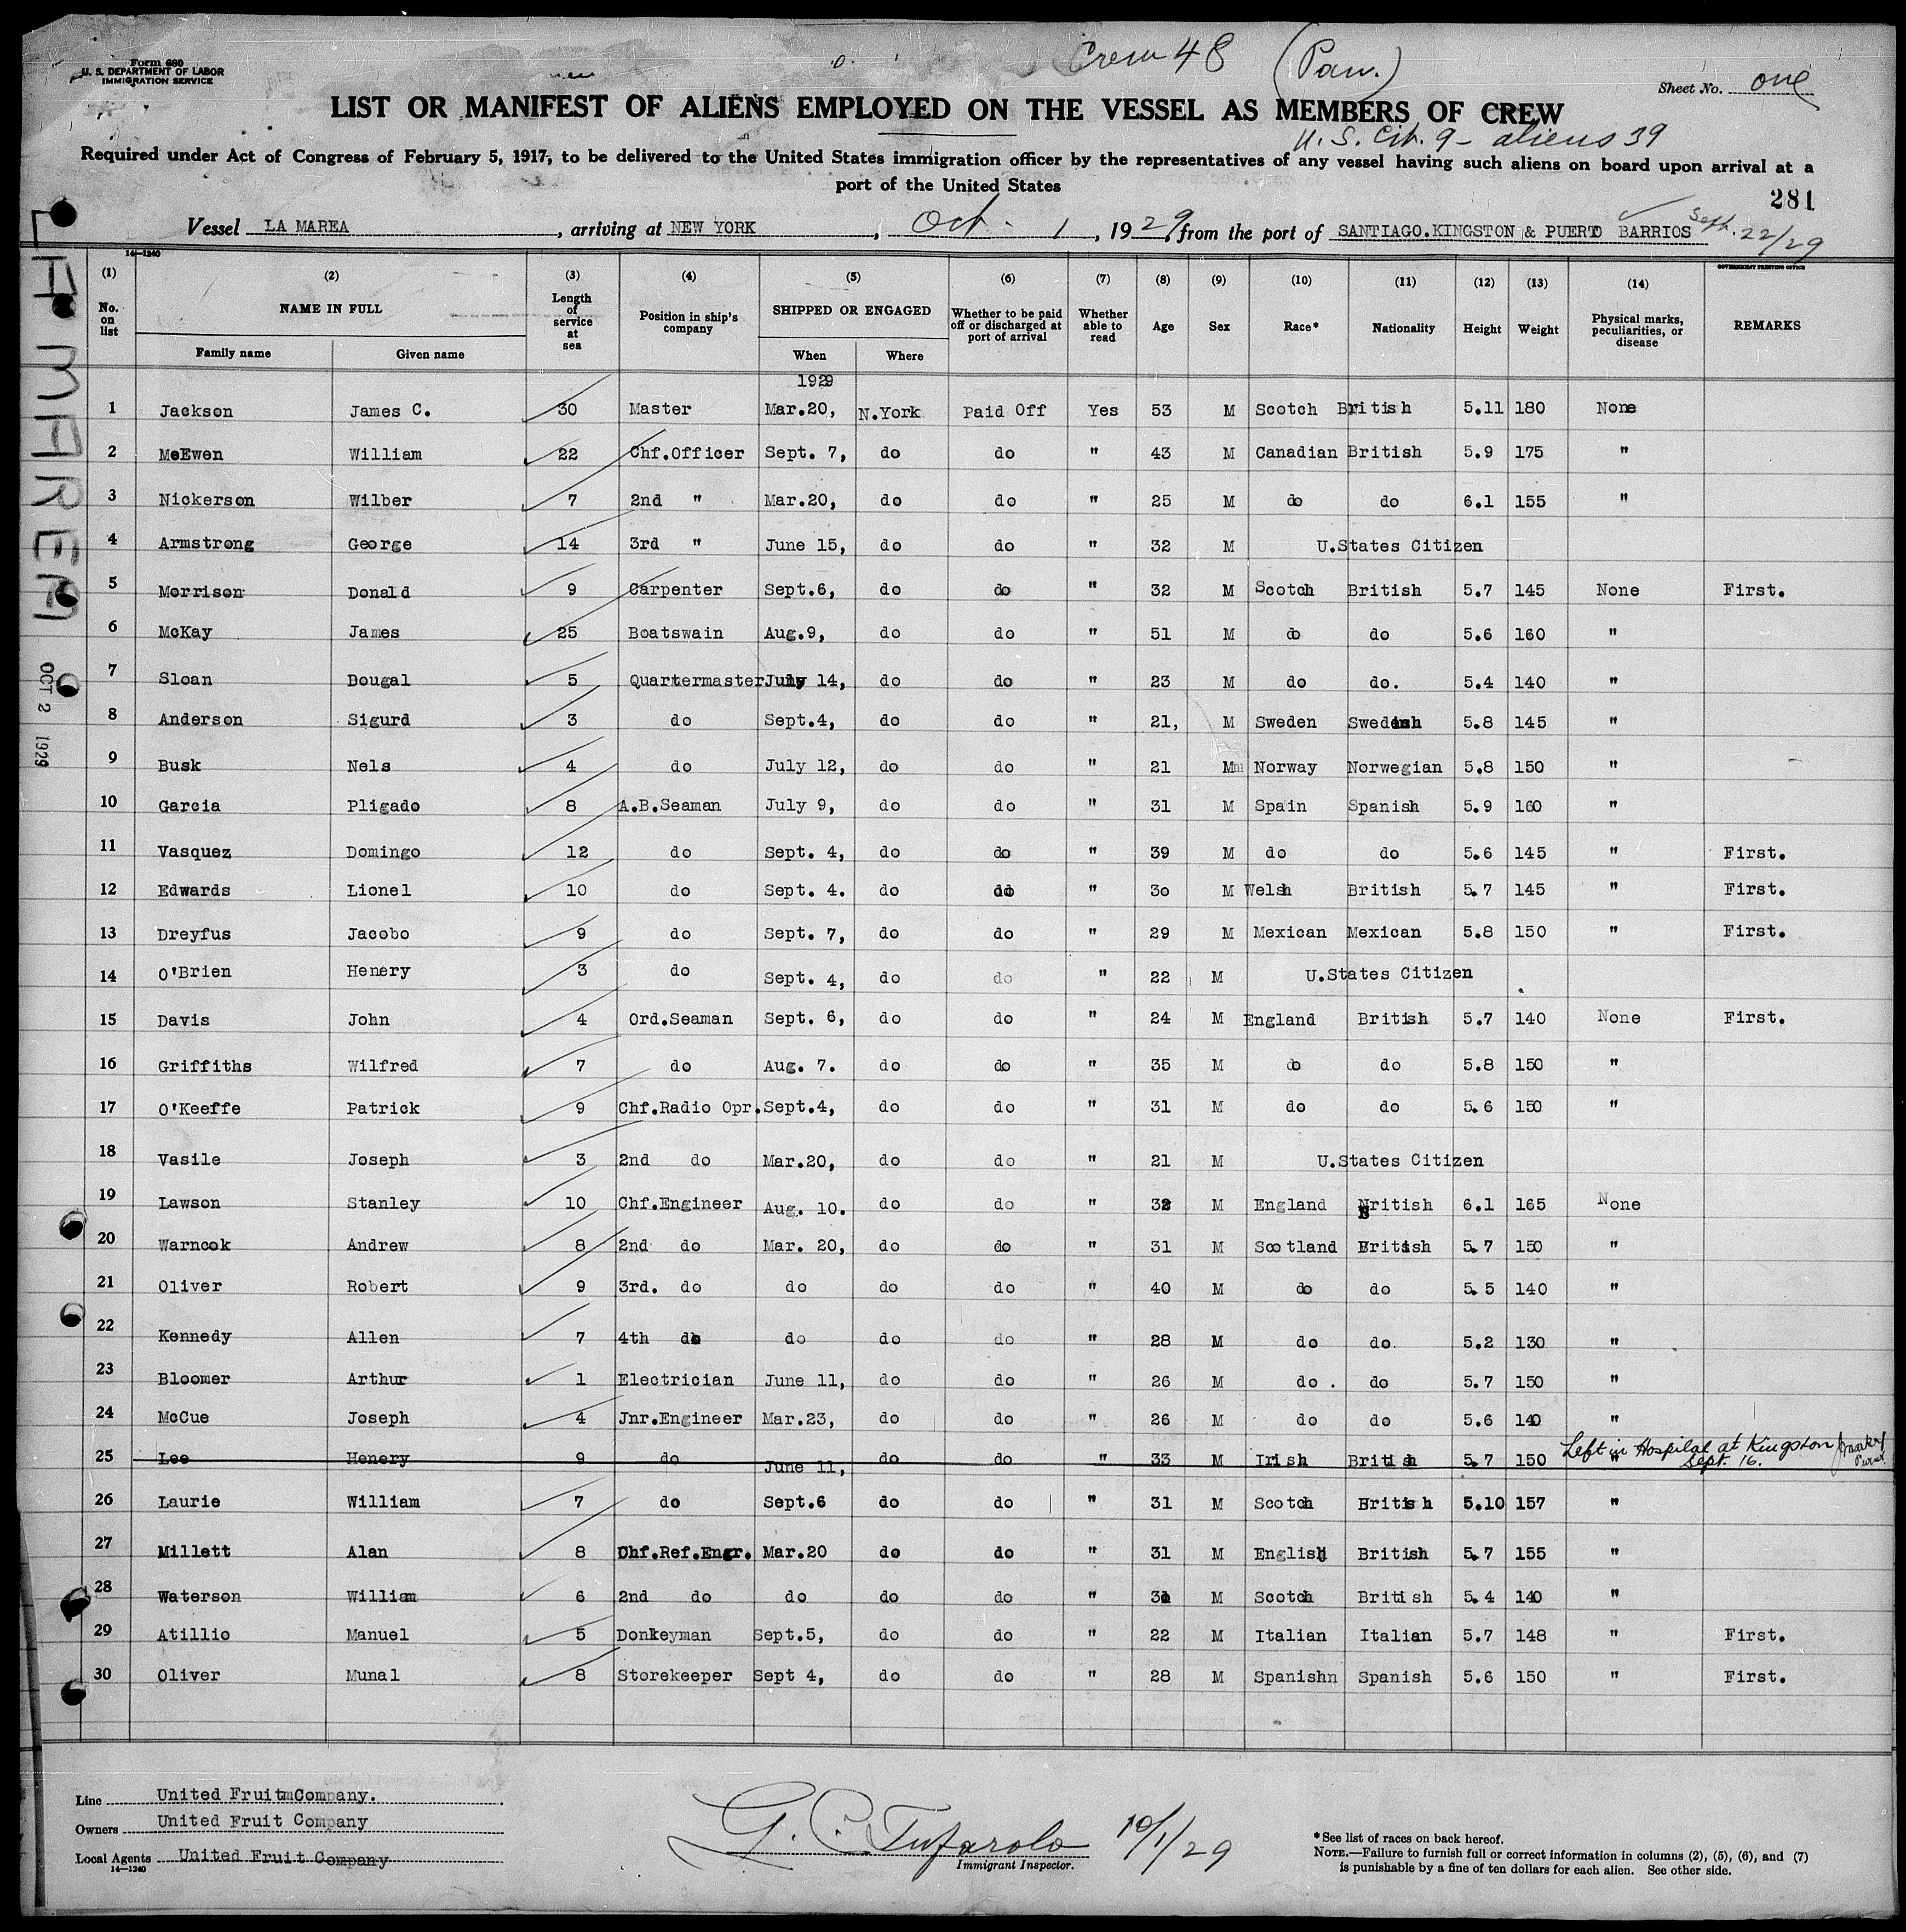 Form 680
U. S. DEPARTMENT OF LABOR
IMMIGRATION SERVICE
Crew 48 (Pan.)
Sheet No. one
LIST OR MANIFEST OF ALIENS EMPLOYED ON THE VESSEL AS MEMBERS OF CREW
U.S. Cit. 9 - aliens 39
Required under Act of Congress of February 5, 1917, to be delivered to the United States immigration officer by the representatives of any vessel having such aliens on board upon arrival at a
port of the United States
281
Vessel LA MAREA, arriving at NEW YORK, Oct. 1, 1929, from the port of SANTIAGO.KINGSTON & PUERTO BARRIOS Sept. 22/29
14—1240
GOVERNMENT PRINTING OFFICE
(1) (2) (3) (4) (5) (6) (7) (8) (9) (10) (11) (12) (13) (14)
No. on list NAME IN FULL Family name Given name Length of service at sea Position in ship's company SHIPPED OR ENGAGED When Where Whether to be paid off or discharged at port of arrival Whether able to read Age Sex Race* Nationality Height Weight Physical marks, peculiarities, or disease REMARKS
1929
1 Jackson James C. 30 Master Mar.20, N.York Paid Off Yes 53 M Scotch British 5.11 180 None
2 McEwen William 22 Chf.Officer Sept. 7, do do " 43 M Canadian British 5.9 175 "
3 Nickerson Wilber 7 2nd " Mar.20, do do " 25 M do do 6.1 155 "
4 Armstrong George 14 3rd " June 15, do do " 32 M U.States Citizen
5 Morrison Donald 9 Carpenter Sept.6, do do " 32 M Scotch British 5.7 145 None First.
6 McKay James 25 Boatswain Aug.9, do do " 51 M do do 5.6 160 "
7 Sloan Dougal 5 Quartermaster July 14, do do " 23 M do do. 5.4 140 "
8 Anderson Sigurd 3 do Sept.4, do do " 21, M Sweden Swedish 5.8 145 "
9 Busk Nels 4 do July 12, do do " 21 M Norway Norwegian 5.8 150 "
10 Garcia Pligado 8 A.B.Seaman July 9, do do " 31 M Spain Spanish 5.9 160 "
11 Vasquez Domingo 12 do Sept. 4, do do " 39 M do do 5.6 145 " First.
12 Edwards Lionel 10 do Sept. 4. do do " 30 M Welsh British 5.7 145 " First.
13 Dreyfus Jacobo 9 do Sept. 7, do do " 29 M Mexican Mexican 5.8 150 " First.
14 O'Brien Henery 3 do Sept. 4, do do " 22 M U.States Citizen
15 Davis John 4 Ord.Seaman Sept. 6, do do " 24 M England British 5.7 140 None First.
16 Griffiths Wilfred 7 do Aug. 7. do do " 35 M do do 5.8 150 "
17 O'Keeffe Patrick 9 Chf.Radio Opr. Sept.4, do do " 31 M do do 5.6 150 "
18 Vasile Joseph 3 2nd do Mar.20, do do " 21 M U.States Citizen
19 Lawson Stanley 10 Chf.Engineer Aug. 10. do do " 32 M England British 6.1 165 None
20 Warncok Andrew 8 2nd do Mar. 20, do do " 31 M Scotland British 5.7 150 "
21 Oliver Robert 9 3rd. do do do do " 40 M do do 5.5 140 "
22 Kennedy Allen 7 4th do do do do " 28 M do do. 5.2 130 "
23 Bloomer Arthur 1 Electrician June 11, do do " 26 M do. do 5.7 150 "
24 McCue Joseph 4 Jnr.Engineer Mar.23, do do " 26 M do do 5.6 140 "
25 Lee Henery 9 do June 11, do do " 33 M Irish British 5.7 150 " Left in Hospital at Kingston
Sept. 16.
26 Laurie William 7 do Sept.6 do do " 31 M Scotch British 5.10 157 "
27 Millett Alan 8 Chf.Ref.Engr. Mar.20 do do " 31 M English British 5.7 155 "
28 Waterson William 6 2nd do do do do " M Scotch British 5.4 140 "
29 Atillio Manuel 5 Donkeyman Sept.5, do do " 22 M Italian Italian 5.7 148 " First.
30 Oliver Munal 8 Storekeeper Sept 4, do do " 28 M Spanishn Spanish 5.6 150 " First.
LA MAREA
OCT 2 1929
Line United FruitmCompany.
Owners United Fruit Company
Local Agents United Fruit Company
14—1240
G. C. Tufarolo 10/1/29
Immigrant Inspector.
*See list of races on back hereof.
NOTE.—Failure to furnish full or correct information in columns (2), (5), (6), and (7)
is punishable by a fine of ten dollars for each alien. See other side.